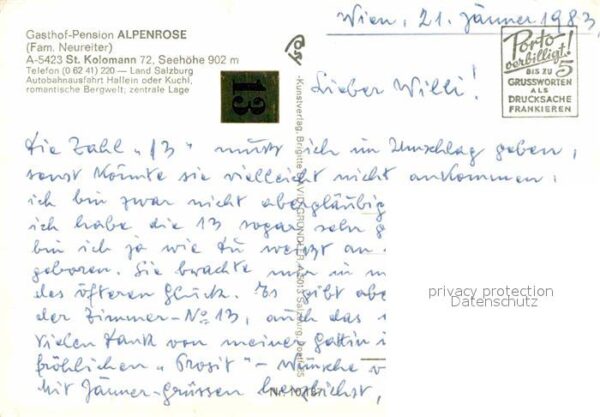 Gasthof-Pension ALPENROSE
(Fam. Neureiter)
A-5423 St. Kolomann 72, Seehöhe 902 m
Telefon (0 62 41) 220 — Land Salzburg
Autobahnausfahrt Hallein oder Kuchl,
romantische Bergwelt; zentrale Lage
13
Wien, 21. Jänner 1983,
Porto
verbilligt!
BIS ZU 5
GRUSSWORTEN
ALS
DRUCKSACHE
FRANKIEREN
Lieber Willi!
Die Zahl „13" musst ich im Umschlag geben,
sonst könnte sie vielleicht nicht ankommen.
ich bin zwar nicht abergläubig
ich habe die 13 sogar sehr g
bin ich ja wie Du weisst an
geboren. Sie brachte mir in m
des öfteren Glück. Es gibt abe
der Zimmer-No 13, auch das
vielen Dank von meiner Gattin
fröhlichen „Prosit"-Wünsche
Mit Jänner-grüssen herzlichst,
Kunstverlag, Brigitte
A-5013 Salzburg, Postf.
privacy protection
Datenschutz